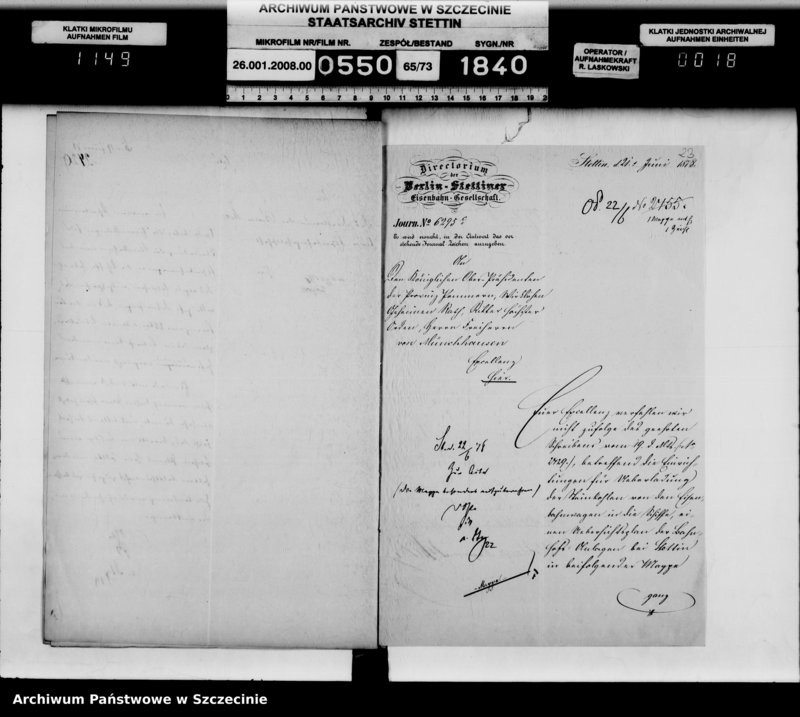 ARCHIWUM PAŃSTWOWE W SZCZECINIE
STAATSARCHIV STETTIN
KLATKI MIKROFILMU
AUFNAHMEN FILM
1149
MIKROFILM NR/FILM NR.
ZESPÓŁ/BESTAND
SYGN./NR
26.001.2008.00
0550
65/73
1840
OPERATOR /
AUFNAHMEKRAFT
R. LASKOWSKI
KLATKI JEDNOSTKI ARCHIWALNEJ
AUFNAHMEN EINHEITEN
0018
0 1 2 3 4 5 6 7 8 9 10 11 12 13 14 15 16 17 18 19 20
23
Stettin, d. Juni 1878.
Directorium
der
Berlin-Stettiner
Eisenbahn-Gesellschaft.
Journ. No 6295
Es wird ersucht, in der Antwort das vor
stehende Journal Zeichen anzugeben.
22/6 No 2455.
1 Mappe
An
Den Königlichen Ober-Präsidenten
der Provinz Pommern, Wirklichen
Geheimen Rath, Ritter höchster
Orden, Herrn Freiherrn
von Münchhausen
Excellenz
Hier.
Euer Excellenz verfehlen wir
nicht zufolge des geehrten
Schreibens vom 19. d. Mts.
2429.), betreffend die Einrich-
tungen für Ueberladung
der Steinkohlen von den Eisen-
bahnwagen in die Schiffe, ei-
nen Uebersichtsplan der Bahn-
hofs-Anlagen bei Stettin
in beifolgender Mappe
ganz
St. d. 22/6 78
(Die Mappe besonders aufzubewahren)
Mappe
Archiwum Państwowe w Szczecinie